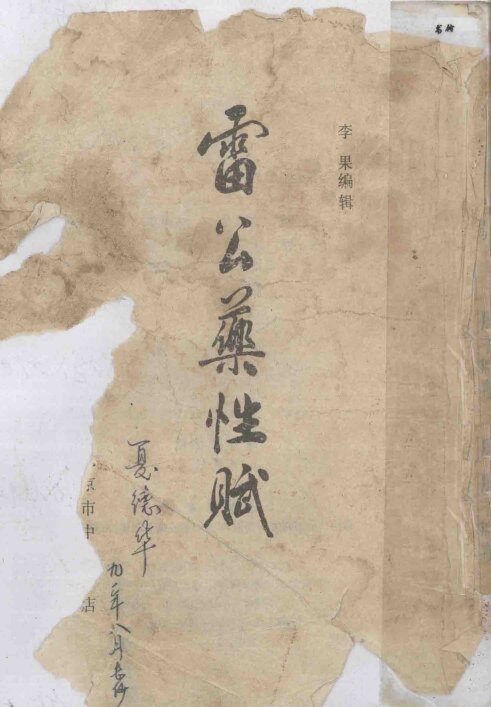 李 果编辑
雷公藥性賦
夏德华
九二年八月
京市中
店